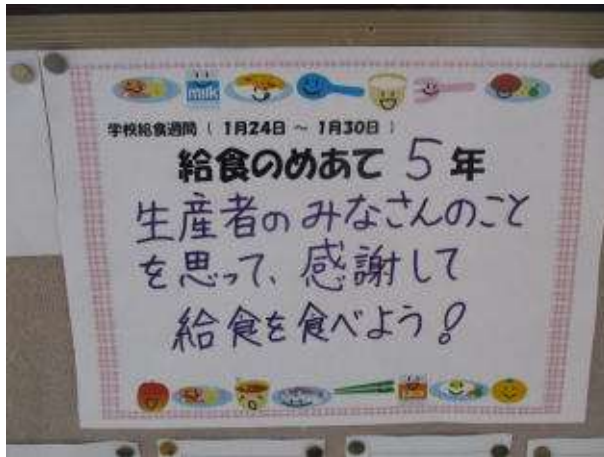 milk
学校給食週間 ( 1月24日 ～ 1月30日 )
給食のめあて 5年
生産者のみなさんのこと
を思って、感謝して
給食を食べよう!